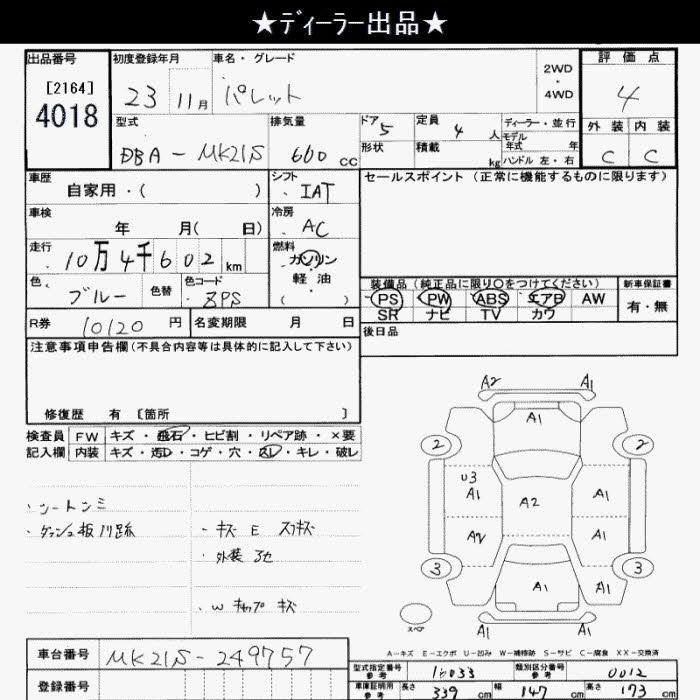 ★ディーラー出品★
出品番号
[2164]
4018
初度登録年月
23 11月
車名・グレード
パレット
2WD
・
4WD
評価点
4
外装 内装
C C
型式
DBA-MK21S
排気量
660 cc
ドア 5
形状
定員 4 人
積載 kg
ディーラー・並行
モデル
年式 年
ハンドル 左・右
車歴
自家用・( )
シフト
IAT
セールスポイント(正常に機能するものに限ります)
車検
年 月( 日)
冷房
AC
走行
10万4千602km
燃料
ガソリン
軽油
( )
色
ブルー
色替
色コード
ZPS
装備品(純正品に限り○をつけてください)
PS PW ABS エアB AW
SR ナビ TV カワ
新車保証書
有・無
R券 10120 円
名変期限 月 日
後日品
注意事項申告欄(不具合内容等は具体的に記入して下さい)
修復歴 有 〔箇所 〕
検査員 FW キズ・飛石・ヒビ割・リペア跡・×要
記入欄 内装 キズ・汚れ・コゲ・穴・スレ・キレ・破レ
・シートシミ
・ダッシュ板ノリ跡
・キズ E スリキズ
・外装 3セ
・W キャップ キズ
A2 A1
A1
2 2
U3
A1 A2 A1
A2 A1
3 3
A1 A1
スペア
A1 A1
A-キズ E-エクボ U-凹み W-補修跡 S-サビ C-腐食 XX-交換済
車台番号 MK21S-249757
登録番号
型式指定番号
参考
16033
類別区分番号
参考
0012
車庫証明用
参考
長さ 339 cm 幅 147 cm 高さ 173 cm